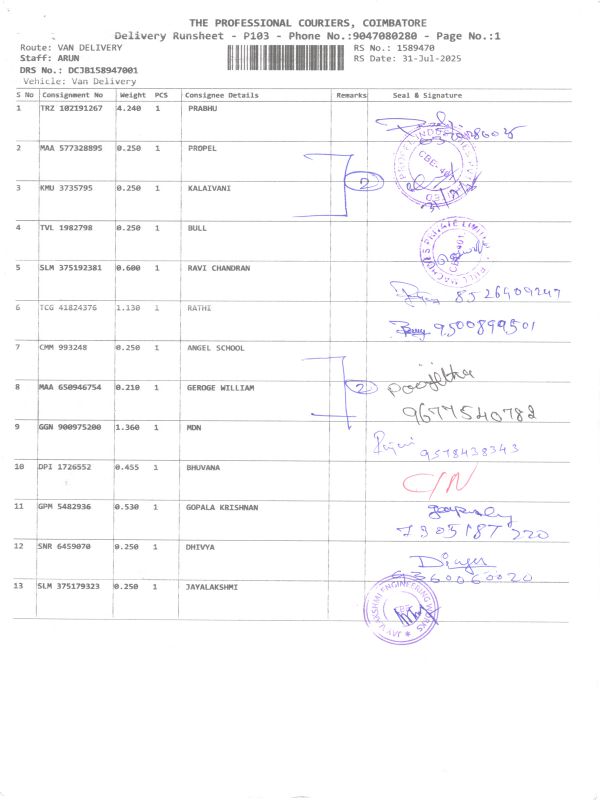 THE PROFESSIONAL COURIERS, COIMBATORE
Delivery Runsheet - P103 - Phone No.:9047080280 - Page No.:1
Route: VAN DELIVERY RS No.: 1589470
Staff: ARUN RS Date: 31-Jul-2025
DRS No.: DCJB158947001
Vehicle: Van Delivery
S No Consignment No Weight PCS Consignee Details Remarks Seal & Signature
1 TRZ 102191267 4.240 1 PRABHU
2 MAA 577328895 0.250 1 PROPEL
2
3 KMU 3735795 0.250 1 KALAIVANI
4 TVL 1982798 0.250 1 BULL
5 SLM 375192381 0.600 1 RAVI CHANDRAN
8526409247
6 TCG 41824376 1.130 1 RATHI
9500899501
7 CMM 993248 0.250 1 ANGEL SCHOOL
8 MAA 650946754 0.210 1 GEROGE WILLIAM 2
9677540782
9 GGN 900975200 1.360 1 MDN
9578438343
10 DPI 1726552 0.455 1 BHUVANA C/N
11 GPM 5482936 0.530 1 GOPALA KRISHNAN
12 SNR 6459070 0.250 1 DHIVYA
13 SLM 375179323 0.250 1 JAYALAKSHMI
JAYALAKSHMI ENGINEERING WORKS